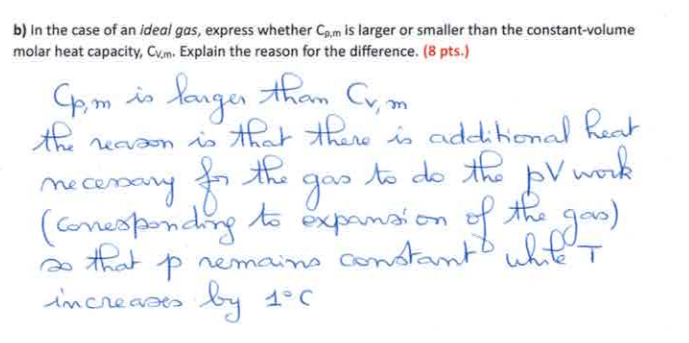 b) In the case of an ideal gas, express whether Cp,m is larger or smaller than the constant-volume
molar heat capacity, Cv,m. Explain the reason for the difference. (8 pts.)
Cp,m is larger than Cv,m
the reason is that there is additional heat
necessary for the gas to do the pV work
(corresponding to expansion of the gas)
so that p remains constant while T
increases by 1°C